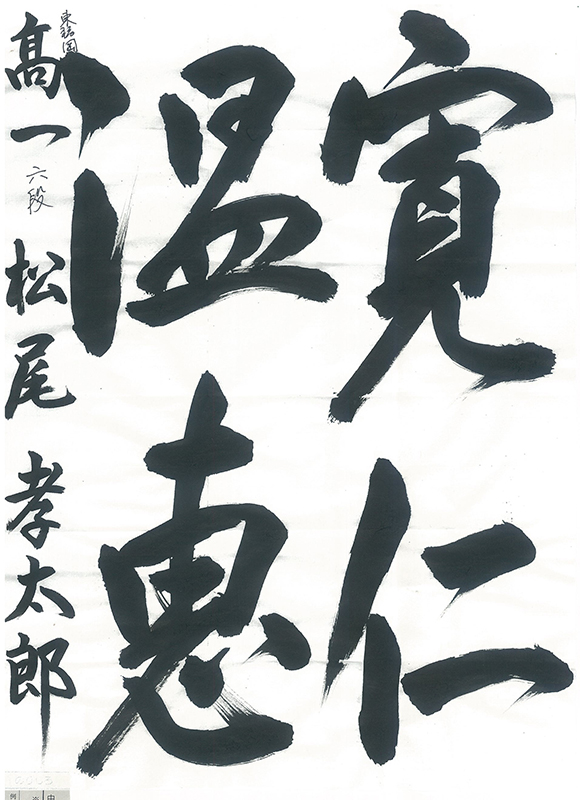 寛仁
温恵
東福岡
高一 六段 松尾 孝太郎